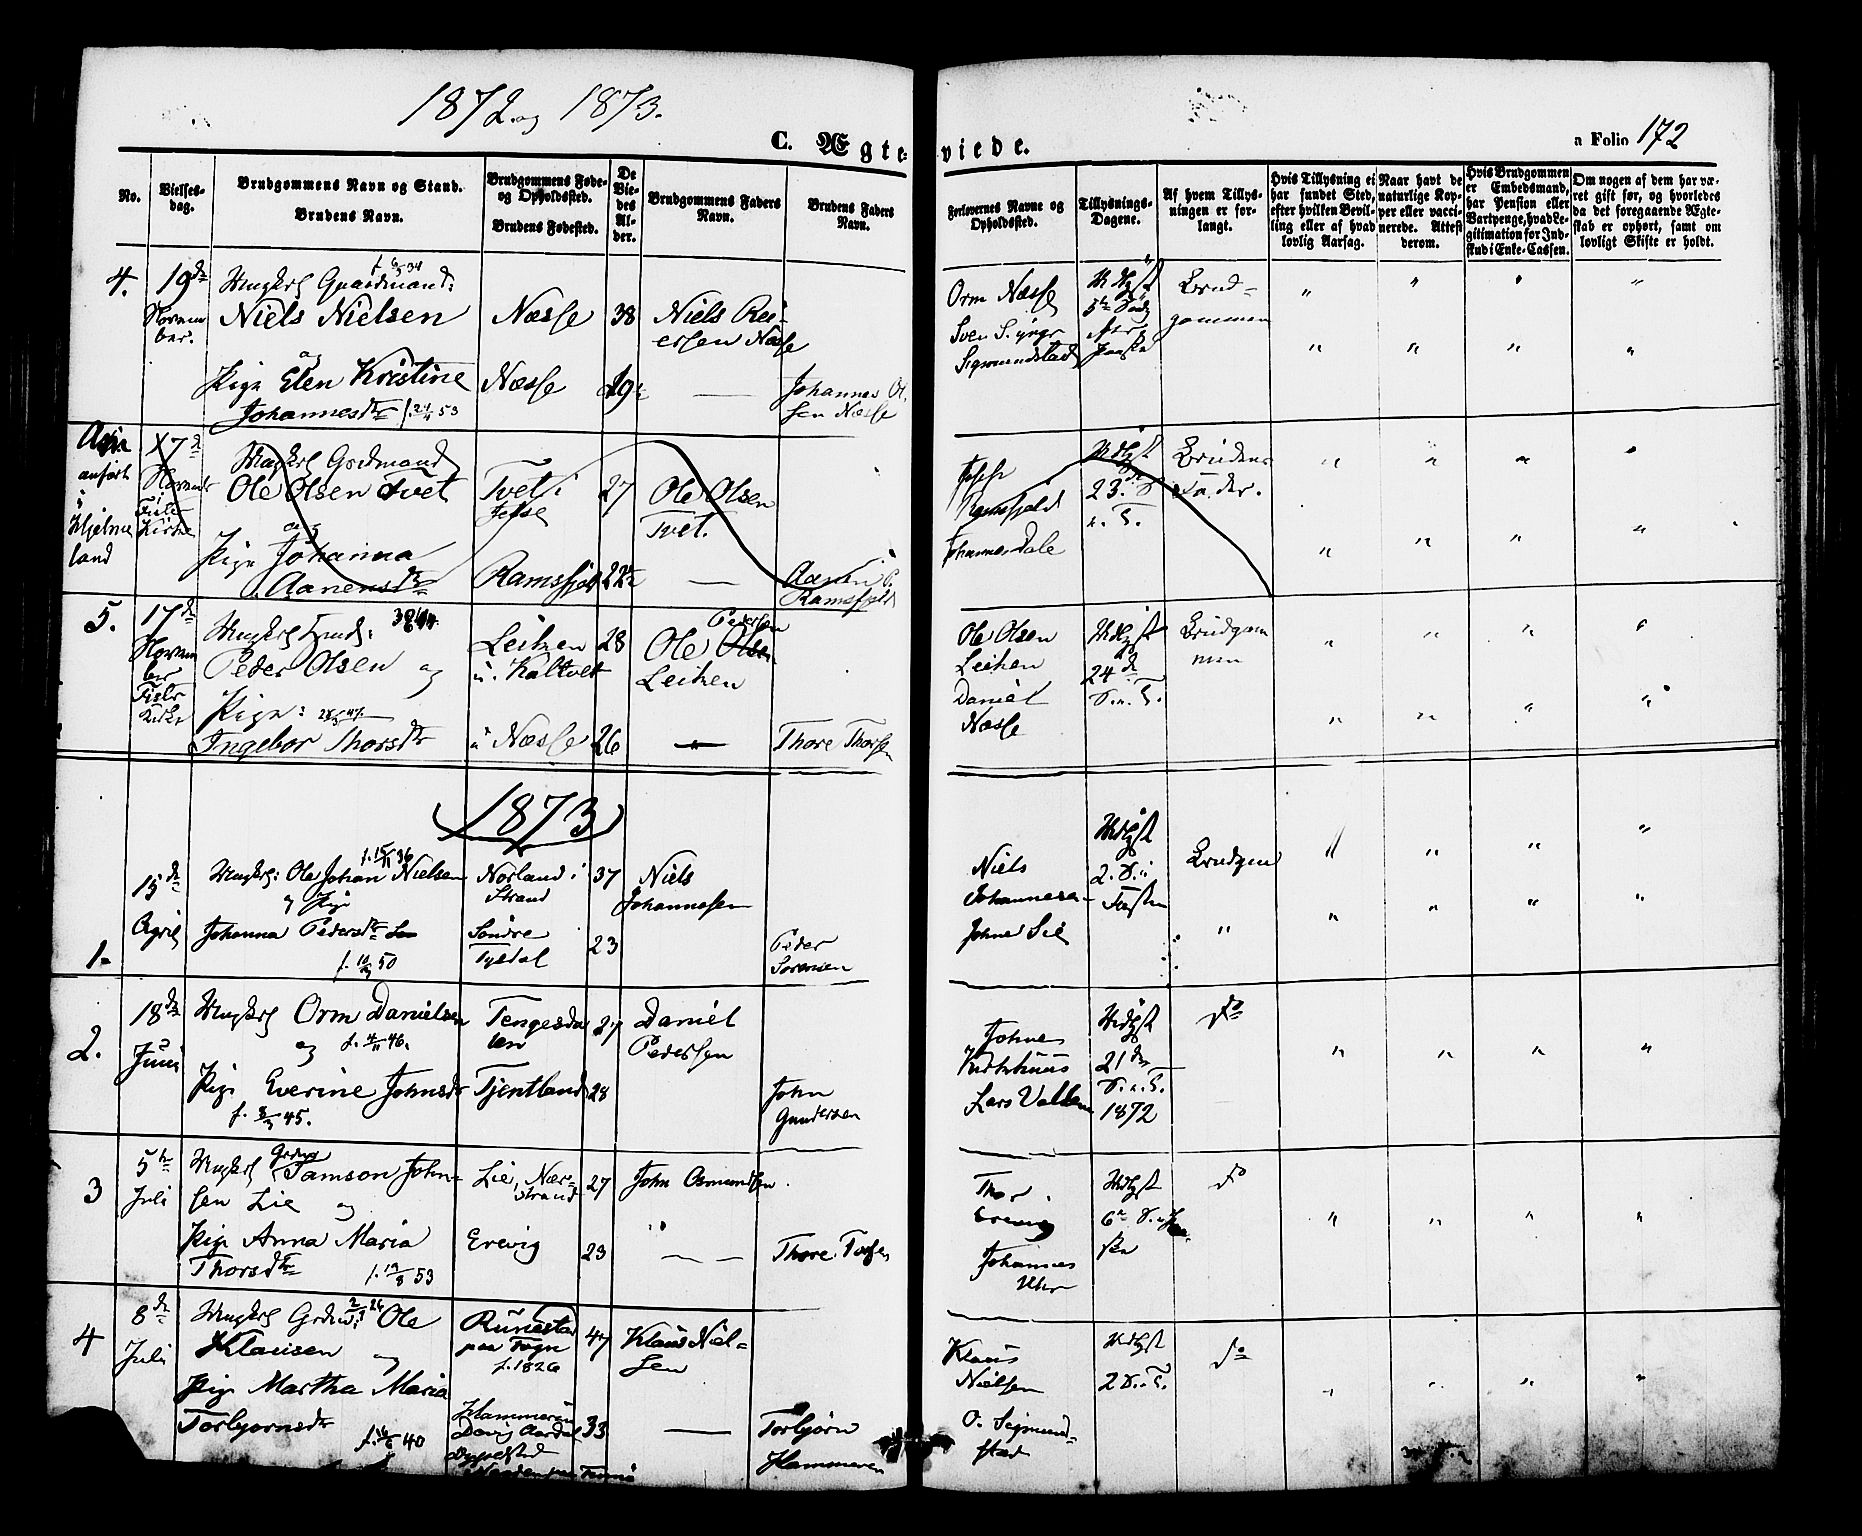 1872 og 1873.
C. Ægteviede.
a Folio 172
No.
Vielses-
dag.
Brudgommens Navn og Stand.
Brudens Navn.
Brudgommens Føde-
og Opholdssted.
Brudens Fødested.
De
Vie-
des
Al-
der.
Brudgommens Faders
Navn.
Brudens Faders
Navn.
Forlovernes Navne og
Opholdssted.
Tillysnings-
Dagene.
Af hvem Tillys-
ningen er for-
langt.
Hvis Tillysning ei
har fundet Sted,
efter hvilken Bevil-
ling eller af hvad
lovlig Aarsag.
Naar havt de
naturlige Kop-
per eller vacci-
nerede. Attest
derom.
Hvis Brudgommen
er Embedsmand,
har Pension eller
Vartpenge, hvad Le-
gitimation for Ind-
skud i Enke-Cassen.
Om nogen af dem har væ-
ret gift før, og hvorledes
da det foregaaende Ægte-
skab er ophørt, samt om
lovligt Skifte er holdt.
4.
19de
Novem
ber.
Ungkrl Gaardmand:
Niels Nielsen
og
Pige Elen Kristine
Johannesdtr f. 24/11 53
Næsse
Næsse
38
19
Niels Rei-
ersen Næsse
Johannes Ol
sen Næsse
Orm Næsse
Sven S. yngr
Sigmundstad
5te Søndg
Paaske
Brud-
gommen
anført
i
Hjelme
land
17de
Novembr
i Fister
Kirke
Ungkrl Grdmand
Ole Olsen Tvet
og
Pige Johanna
Aanensdtr
Tvet i
Jelse
Ramsfjeld
27
22
Ole Olsen
Tvet.
Aanen
Ramsfjeld
Ramsfjeld
Johannes Dale
23de S
e. T.
Brudens
Fader.
5.
17de
Novem
ber
Fister
Kirke
Ungkrl
Peder Olsen og
Pige:
Ingebor Thorsdtr
Leitzen
i Kaltvet
i Næsse
28
26
Ole Pedersen
Leitzen
Thore Thorsen
Ole Olsen
Leitzen
Daniel
Næsse
24de
S. e. T.
Brudgom
men
1873
1.
15de
April
Ungkrl: Ole Johan Nielsen
f. 15/11 36
og Pige
Johanna Pedersdtr
f. 10/3 50
Norland i
Strand
Søndre
Tytdal
37
23
Niels
Johannesen
Peder
Sørensen
Niels
Johannesen
Johnes Lie
2. S. i
Fasten
Brudgom
2.
18de
Juni
Ungkrl Orm Danielsen
og f. 4/11 46.
Pige Everine Johnsdtr
f. 8/3 45.
Tengesda
len
Tjentland
27
28
Daniel
Pedersen
John
Gundersen
Johnes
Kirkhuus
Lars Valde
21de
S. e. T.
1872
do
3
5te
Juli
Ungkrl Samson John-
sen Lie og
Pige Anna Maria
Thorsdtr f. 19/8 53
Lie, Nær-
strand
Erevig
27
23
John Osmundsen
Thore
Thor
Erevig
Johannes
6te S. i
do
4
8de
Juli
Ungkrl Ole
Klausen og
Pige Martha Maria
Torbjørnsdtr
40
Runestad
paa Fogn
f. 1826
Hammeren
47
33
Klaus Niel-
sen
Torbjørn
Hammeren
Klaus
Nielsen
O. Sigmund-
stad
2 S. e. T.
do